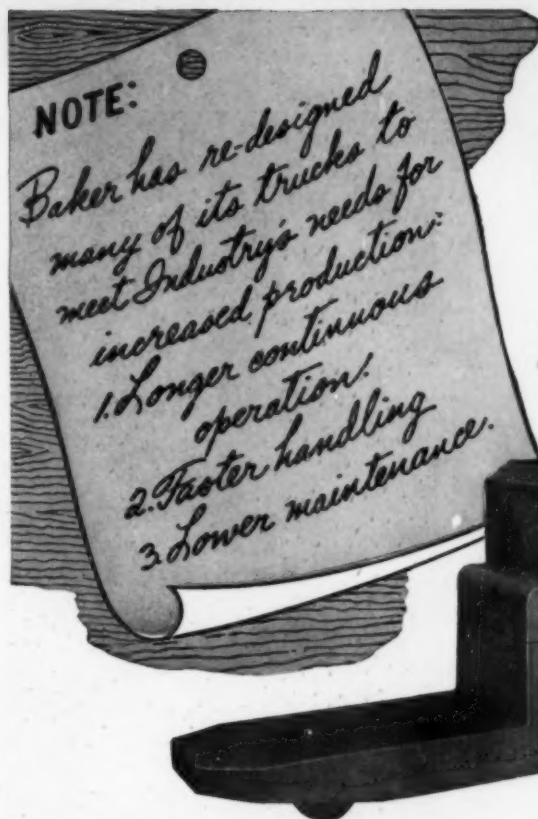 NOTE:
Baker has re-designed
many of its trucks to
meet Industry's needs for
increased production:
1. Longer continuous
operation.
2. Faster handling
3. Lower maintenance.